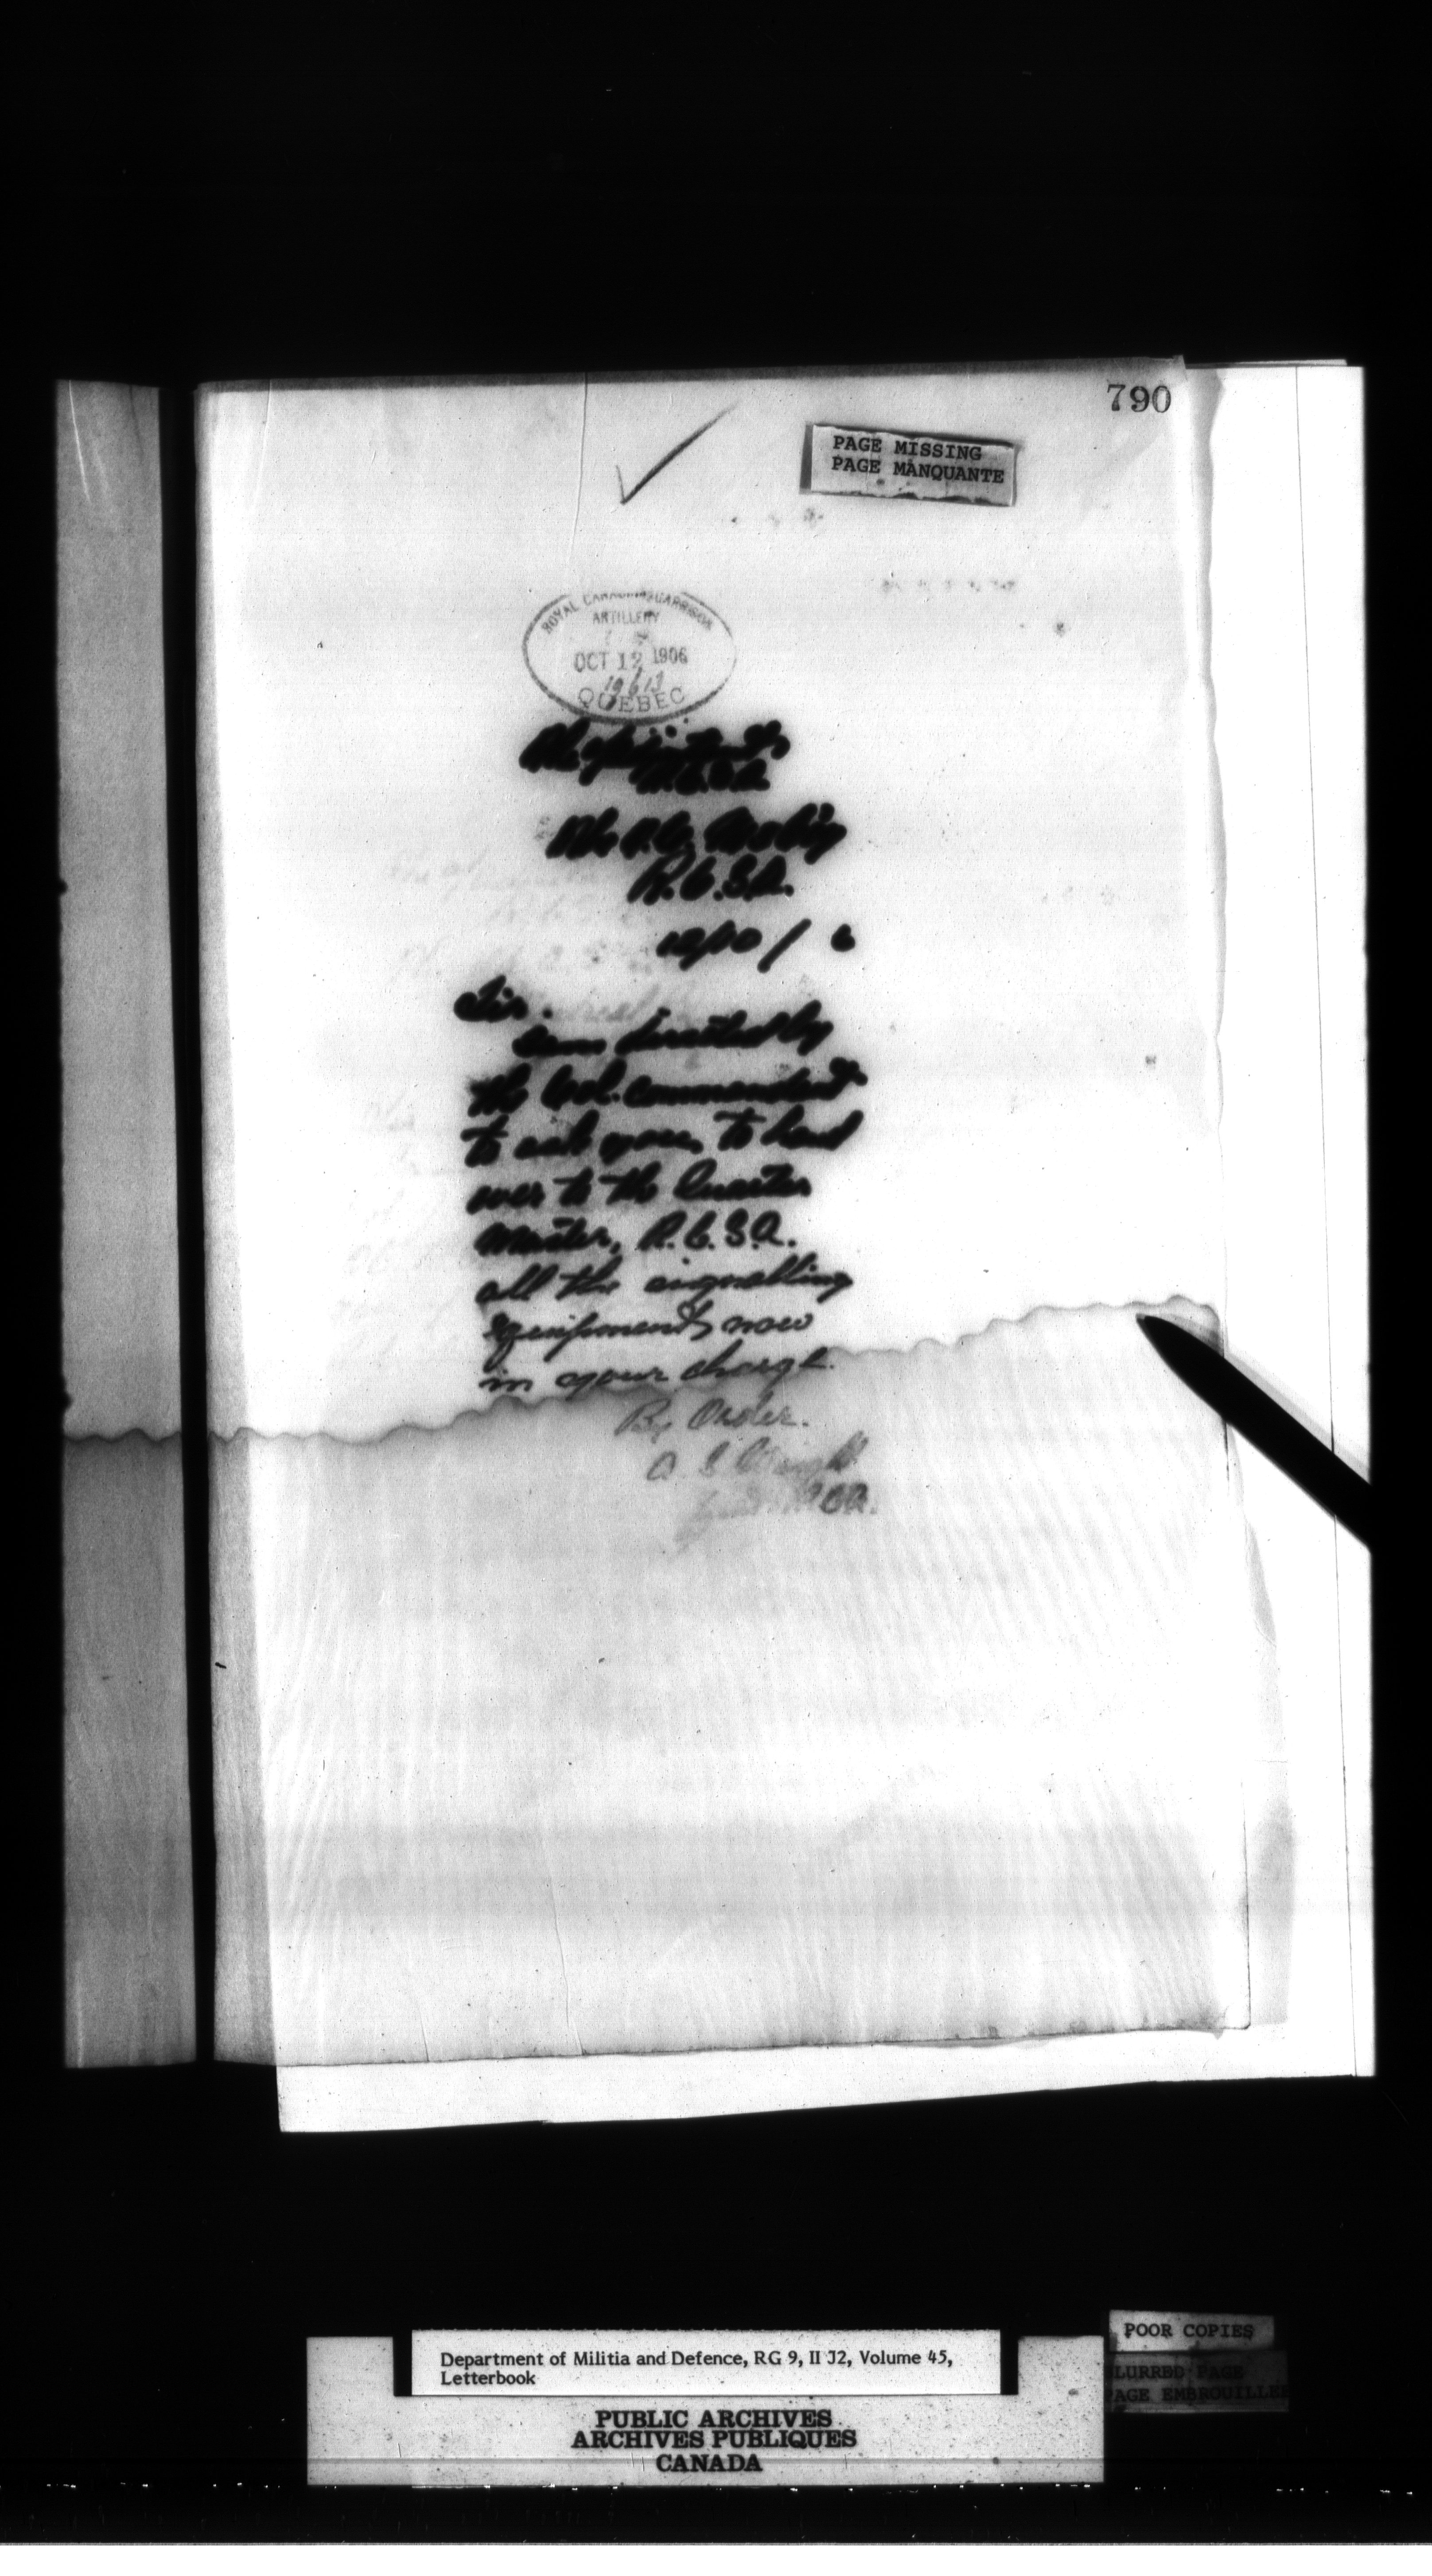 790
PAGE MISSING
PAGE MANQUANTE
ROYAL CANADIAN GARRISON
ARTILLERY
OCT 12 1906
19613
QUEBEC
The Adjutant
R.C.G.A.
The O.C.
R.C.G.A.
12/10/6
Sir.
I am directed by
the Col. Commandant
to ask you to hand
over to the Quarter
Master, R.C.G.A.
all the signalling
equipment now
in your charge.
By Order.
Department of Militia and Defence, RG 9, II J2, Volume 45,
Letterbook
PUBLIC ARCHIVES
ARCHIVES PUBLIQUES
CANADA
POOR COPIES
BLURRED PAGE
PAGE EMBROUILLEE